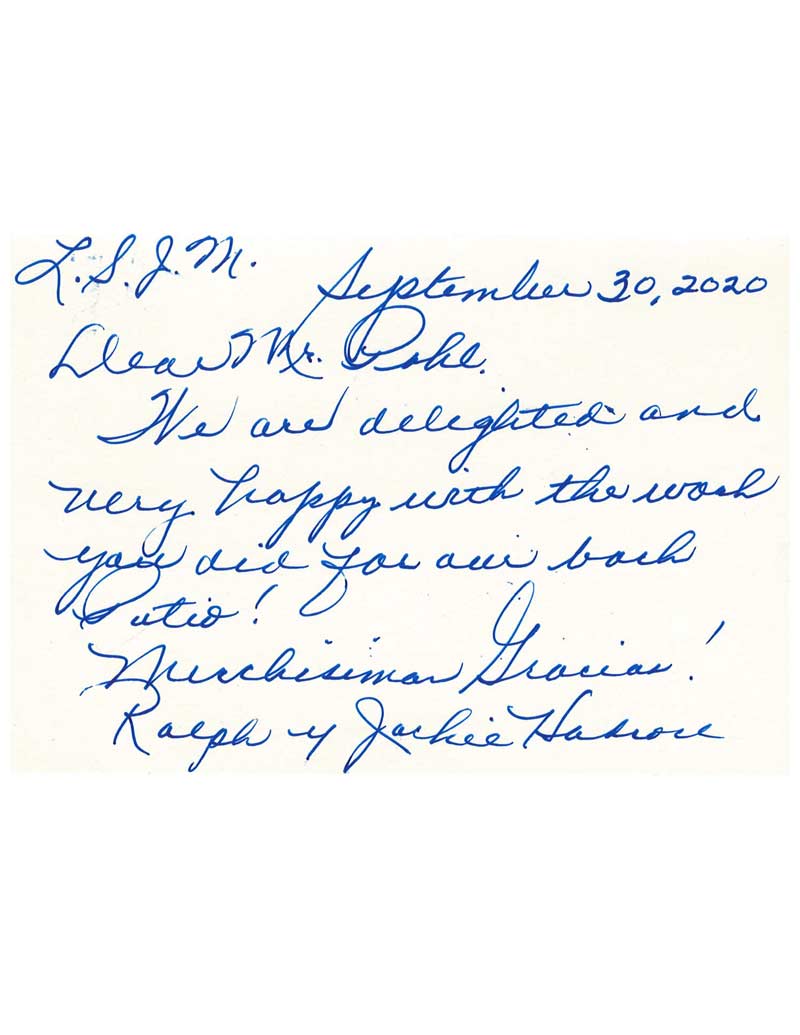 L.S.J.M.
September 30, 2020
Dear Mr. Pohl.
We are delighted and
very happy with the work
you did for our back
Patio!
Muchisimas Gracias!
Ralph y Jackie